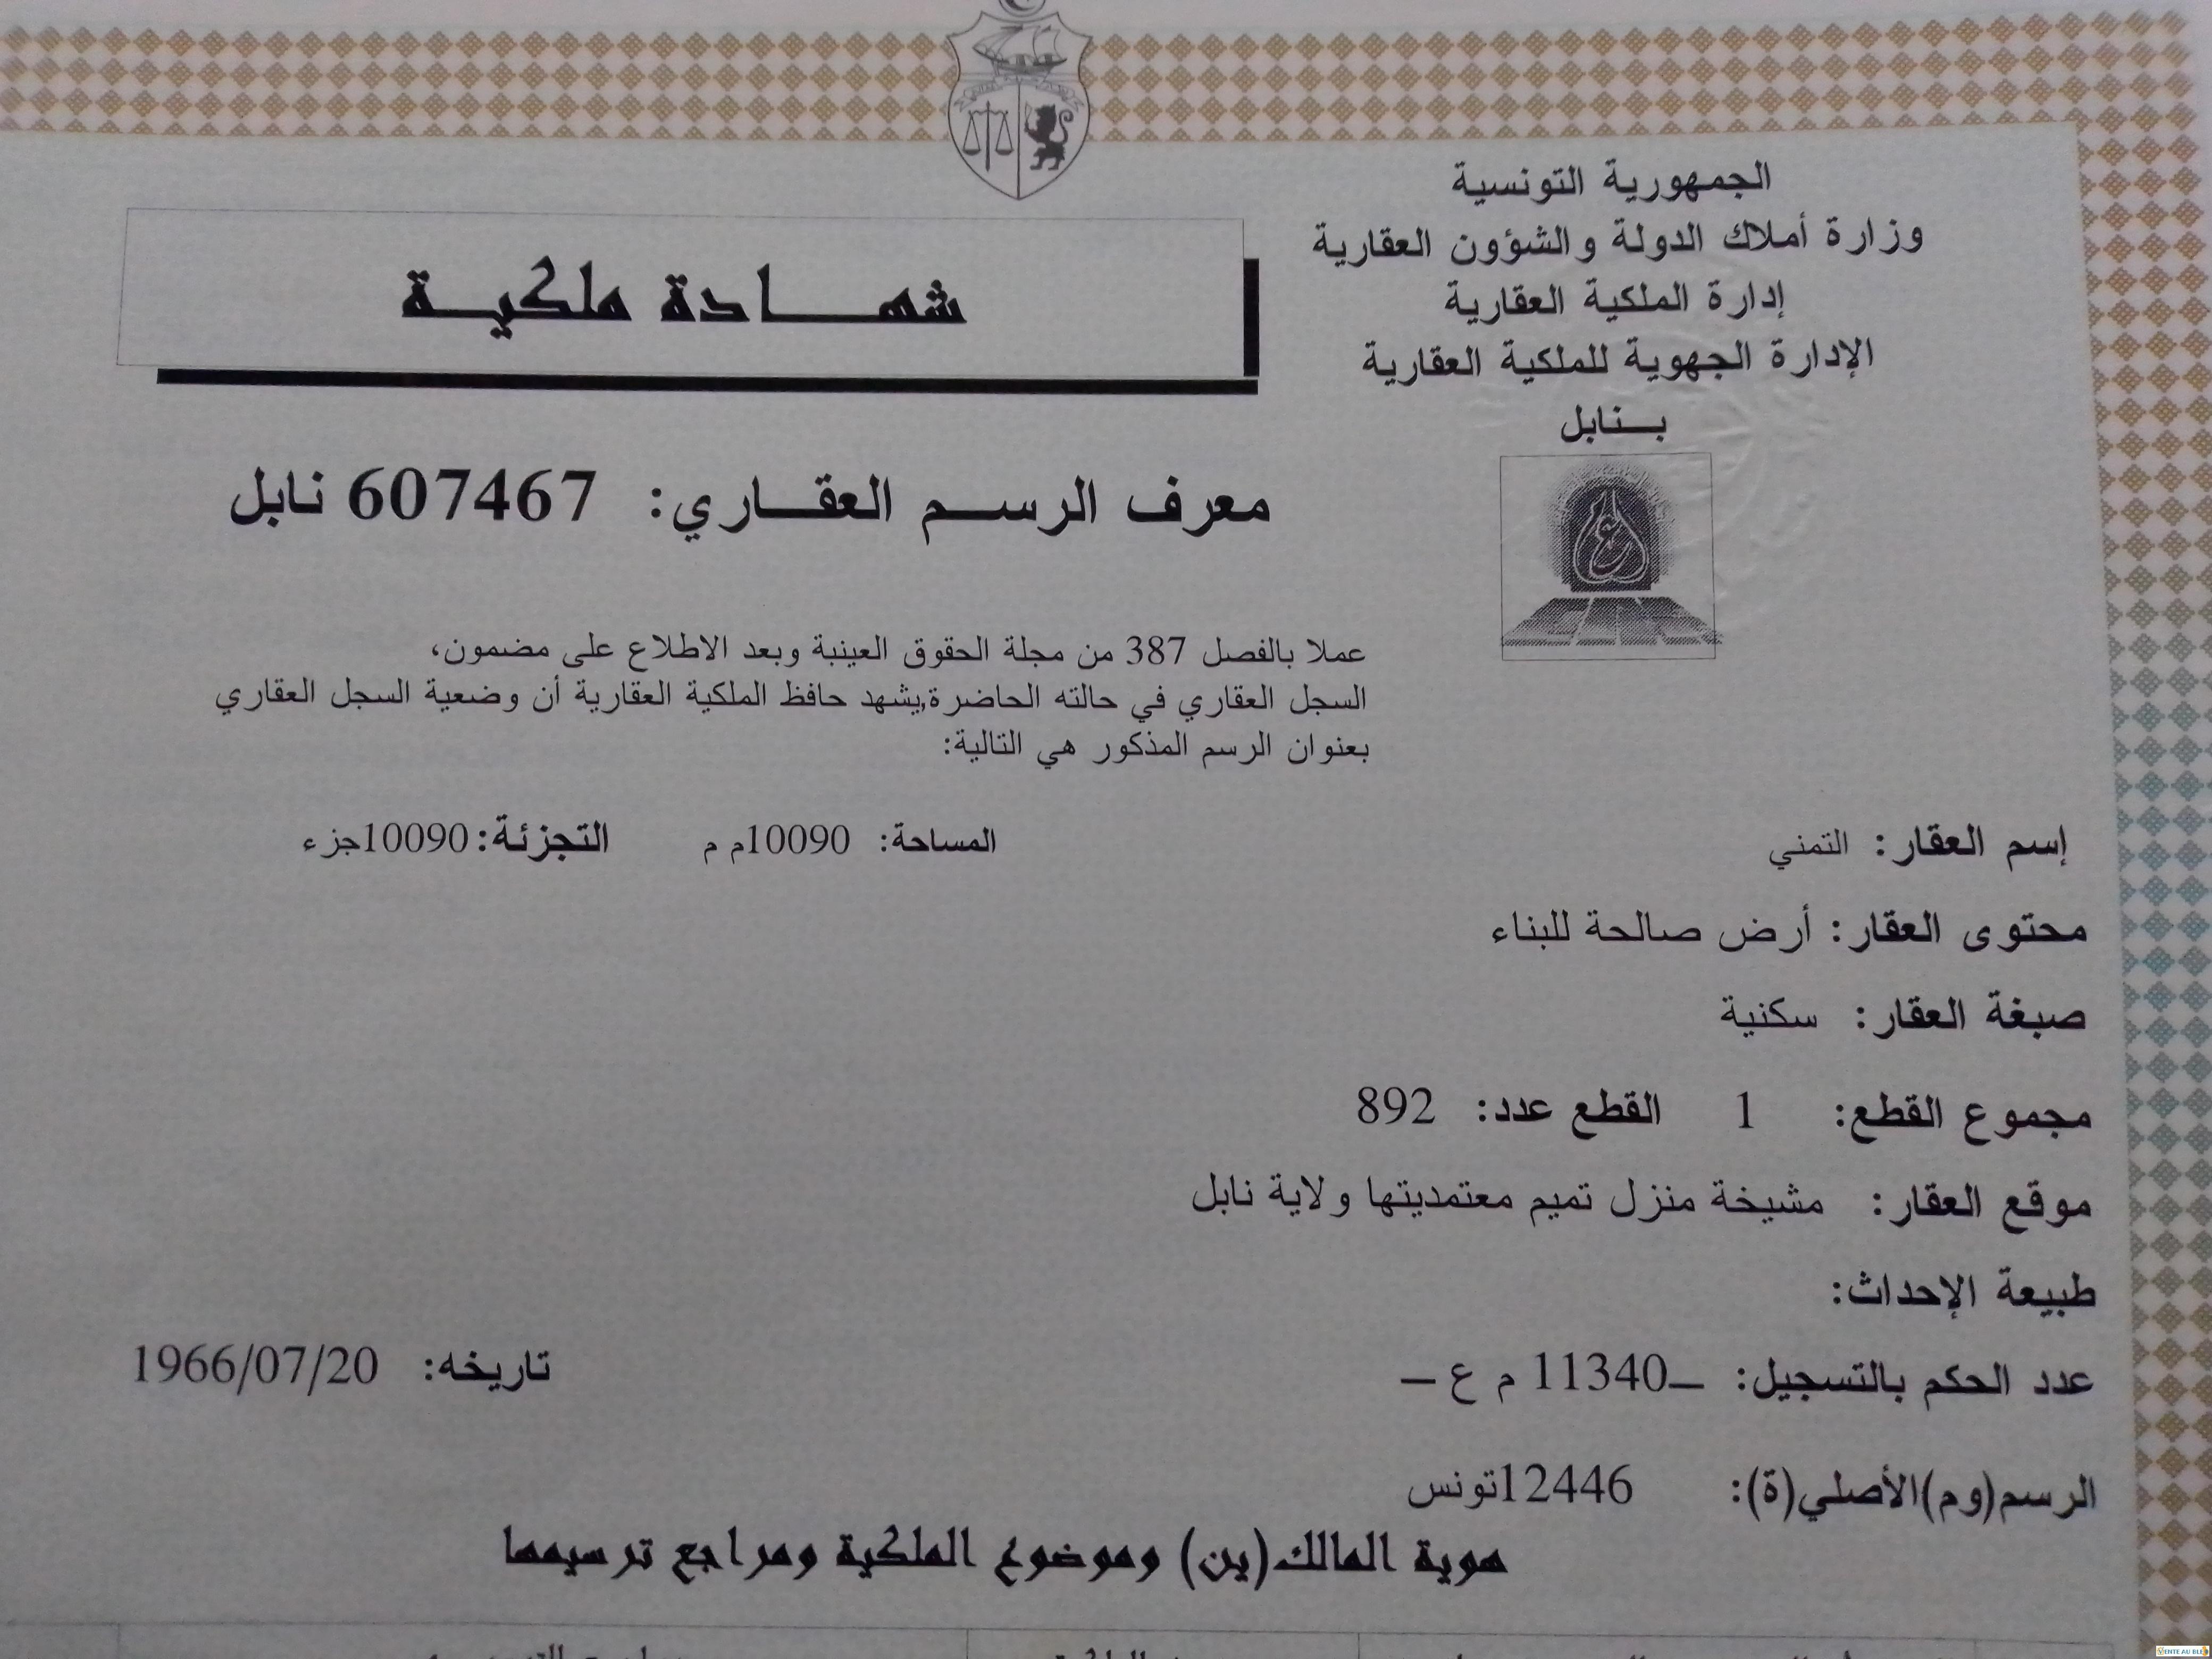 الجمهورية التونسية
وزارة أملاك الدولة والشؤون العقارية
إدارة الملكية العقارية
الإدارة الجهوية للملكية العقارية
بـنابل
شهـــادة ملكيـة
معرف الرســم العقــاري: 607467 نابل
عملا بالفصل 387 من مجلة الحقوق العينية وبعد الاطلاع على مضمون،
السجل العقاري في حالته الحاضرة,يشهد حافظ الملكية العقارية أن وضعية السجل العقاري
بعنوان الرسم المذكور هي التالية:
إسم العقار: التمني المساحة: 10090م م التجزئة:10090جزء
محتوى العقار: أرض صالحة للبناء
صبغة العقار: سكنية
مجموع القطع: 1 القطع عدد: 892
موقع العقار: مشيخة منزل تميم معتمديتها ولاية نابل
طبيعة الإحداث:
عدد الحكم بالتسجيل: _11340 م ع _ تاريخه: 1966/07/20
الرسم(وم)الأصلي(ة): 12446تونس
هوية المالك(ين) وموضوع الملكية ومراجع ترسيمها
VENTE AU BLED